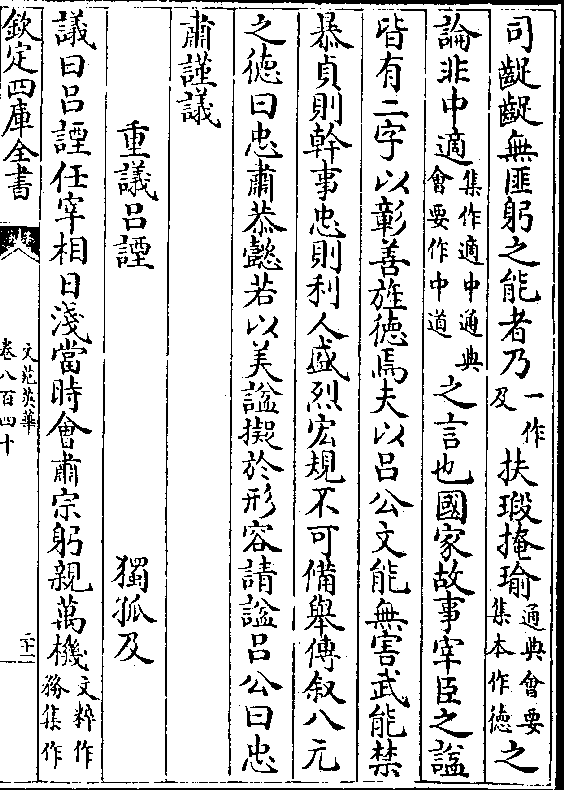 司齪齪無匪躬之能者乃一作及扶瑕掩瑜通典會要集本作德之
論非中適集作適中通典會要作中道之言也國家故事宰臣之謚
皆有二字以彰善旌德焉夫以呂公文能無害武能禁
暴貞則幹事忠則利人盛烈宏規不可備舉傳叙八元
之德曰忠肅恭懿若以美謚擬於形容請謚呂公曰忠
肅謹議
重議呂諲 獨孤及
議曰呂諲任宰相日淺當時會肅宗躬親萬機文粹作務集作
欽定四庫全書
文苑英華
卷八百四十
二十一